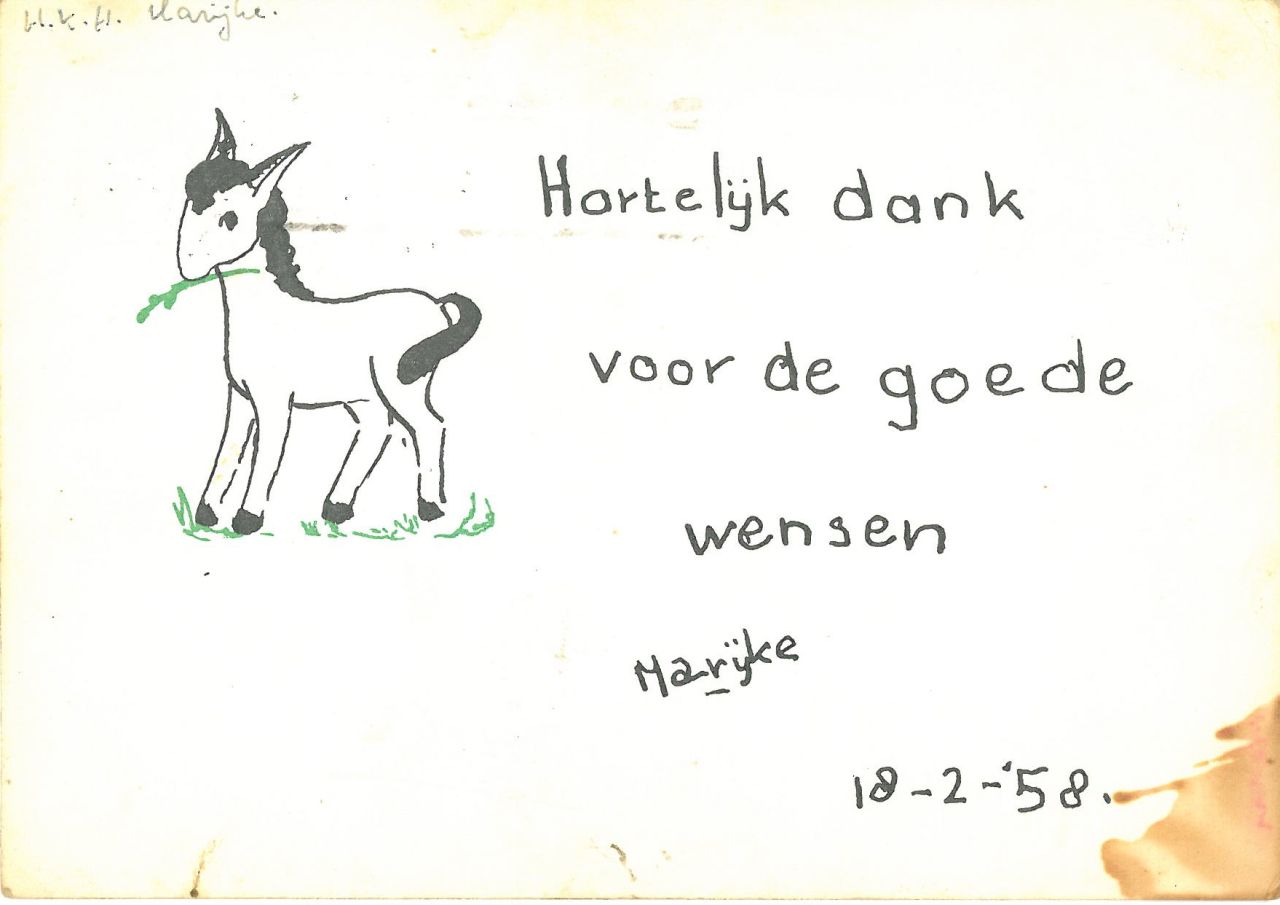 H.K.H. Marijke.
Hortelijk dank
voor de goede
wensen
Marijke
18-2-'58.